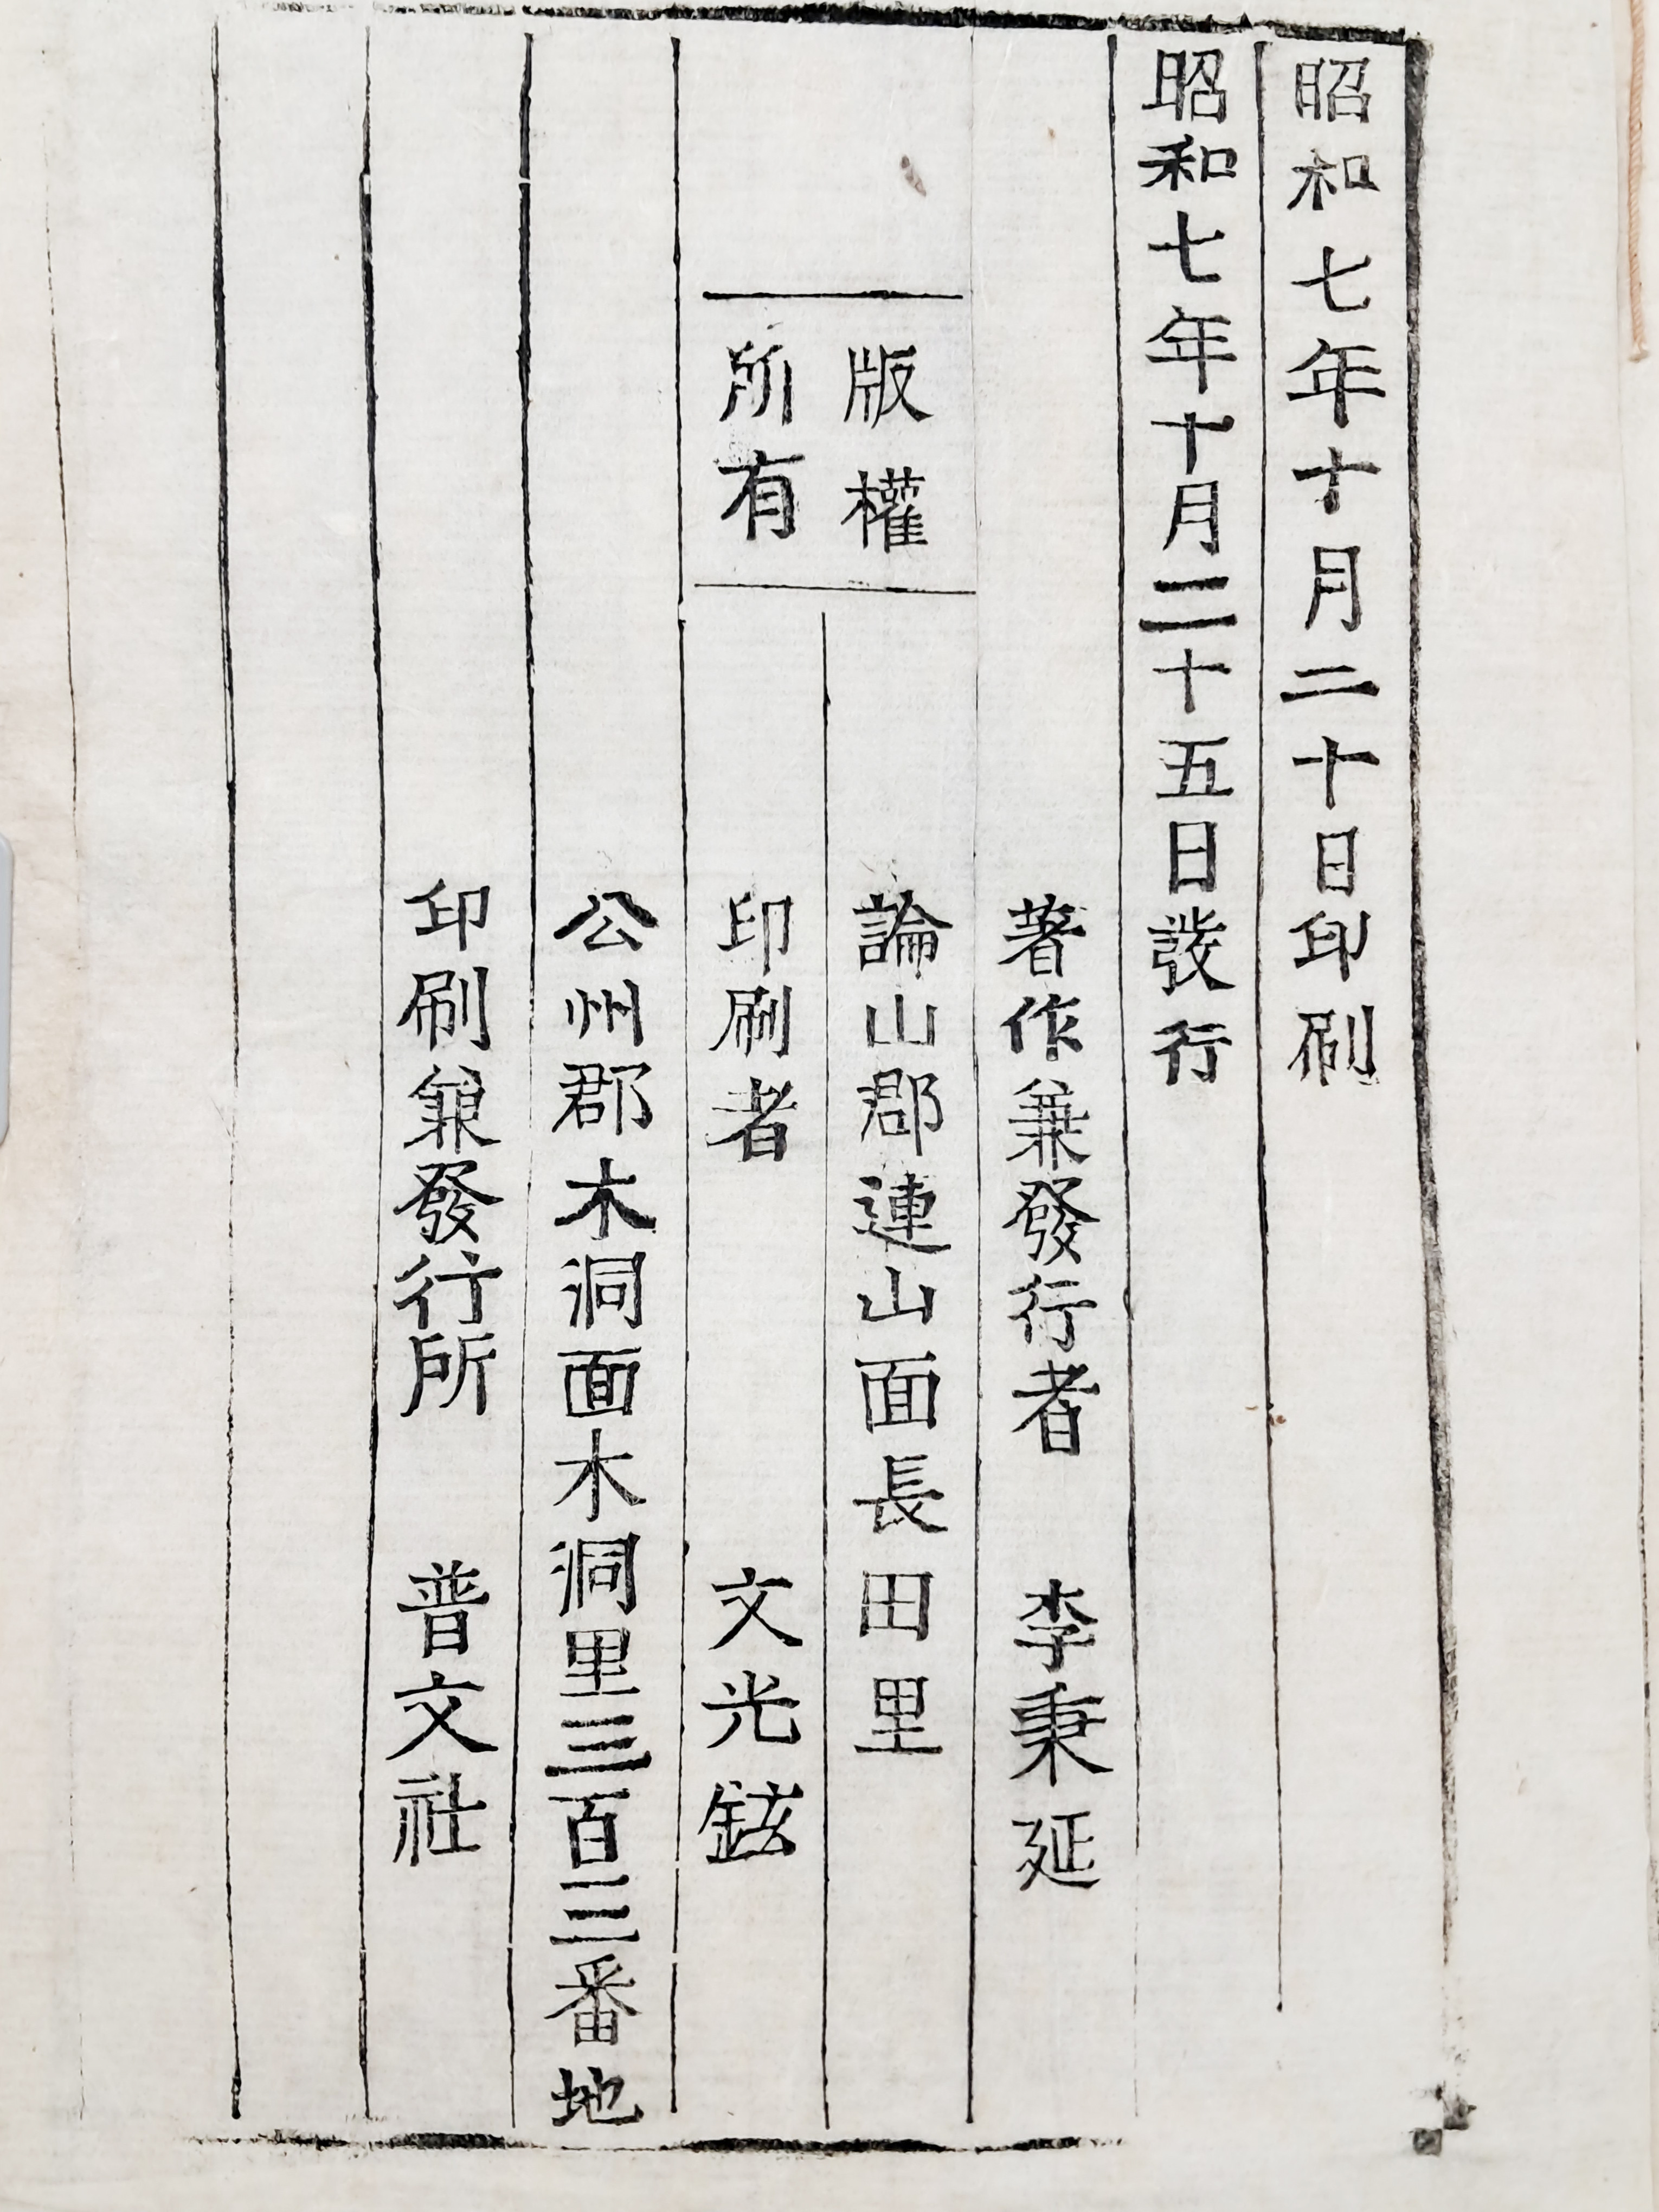 昭和七年十月二十日印刷
昭和七年十月二十五日發行
著作兼發行者 李秉延
版權
所有
論山郡連山面長田里
印刷者 文光鉉
公州郡木洞面木洞里三百三番地
印刷兼發行所 普文社